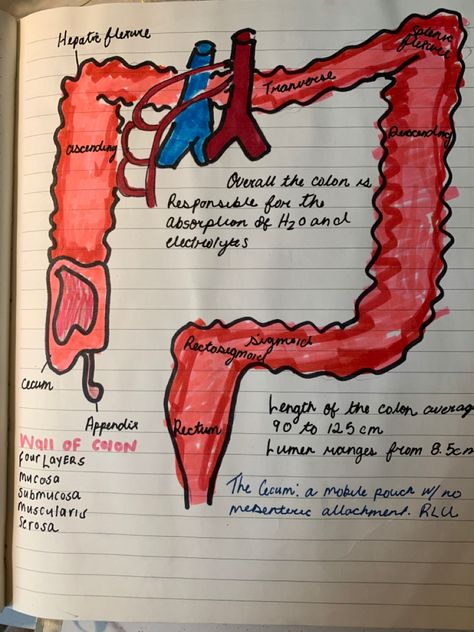 Hepatic flexure
Splenic
flexure
Tranverse
Ascending
Descending
Overall the colon is
Responsible for the
absorption of H2O and
electrolytes
Sigmoid
Rectosigmoid
Cecum
Appendix
Rectum
Length of the colon average
90 to 125cm
Lumen ranges from 8.5cm
Wall of colon
four LAYERS
mucosa
submucosa
muscularis
serosa
The Cecum: a mobile pouch w/ no
mesenteric attachment.